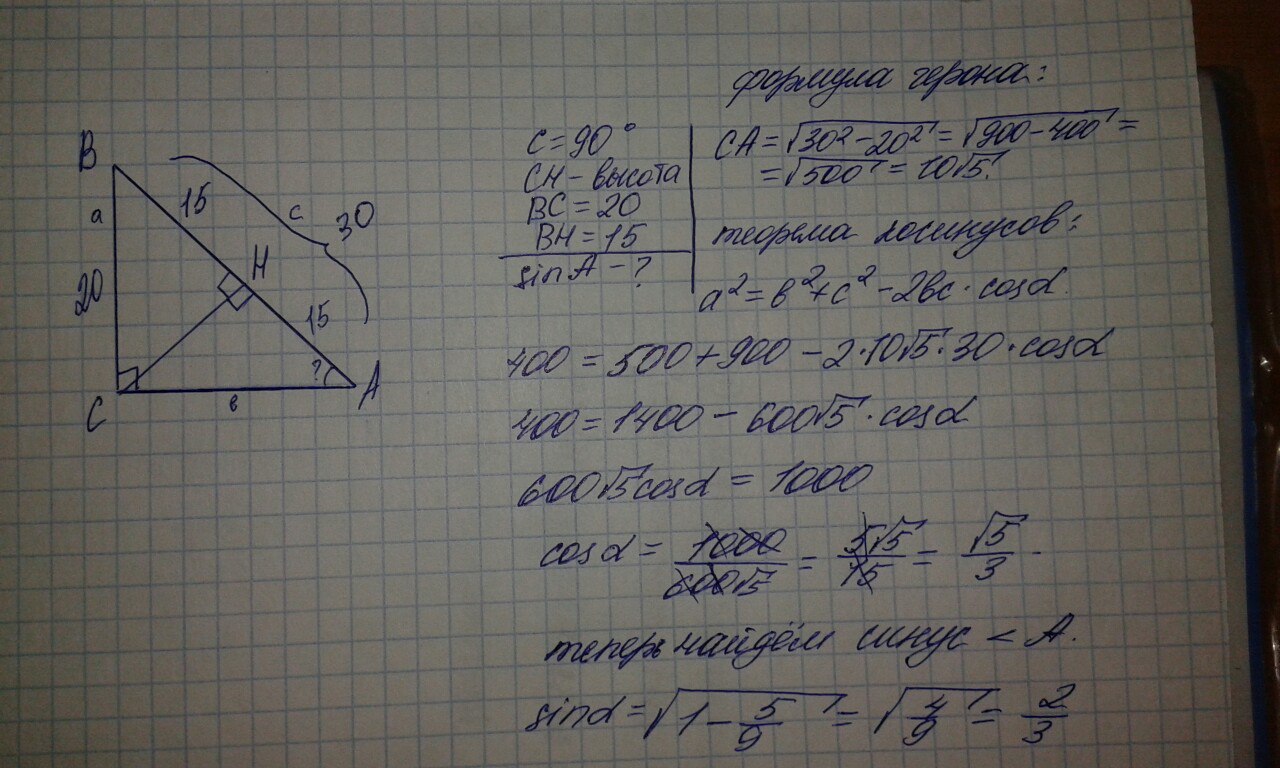 B
a
20
C
15
c
30
H
15
?
A
в
C = 90°
CH - высота
BC = 20
BH = 15
sin A - ?
формула герона:
CA = √30² - 20² = √900 - 400 =
= √500 = 10√5.
теорема косинусов:
a² = в² + c² - 2вc · cosα.
400 = 500 + 900 - 2 · 10√5 · 30 · cosα
400 = 1400 - 600√5 · cosα
600√5 cosα = 1000
cosα = 1000/600√5 = 5√5/15 = √5/3
теперь найдём синус < A.
sinα = √1 - 5/9 = √4/9 = 2/3